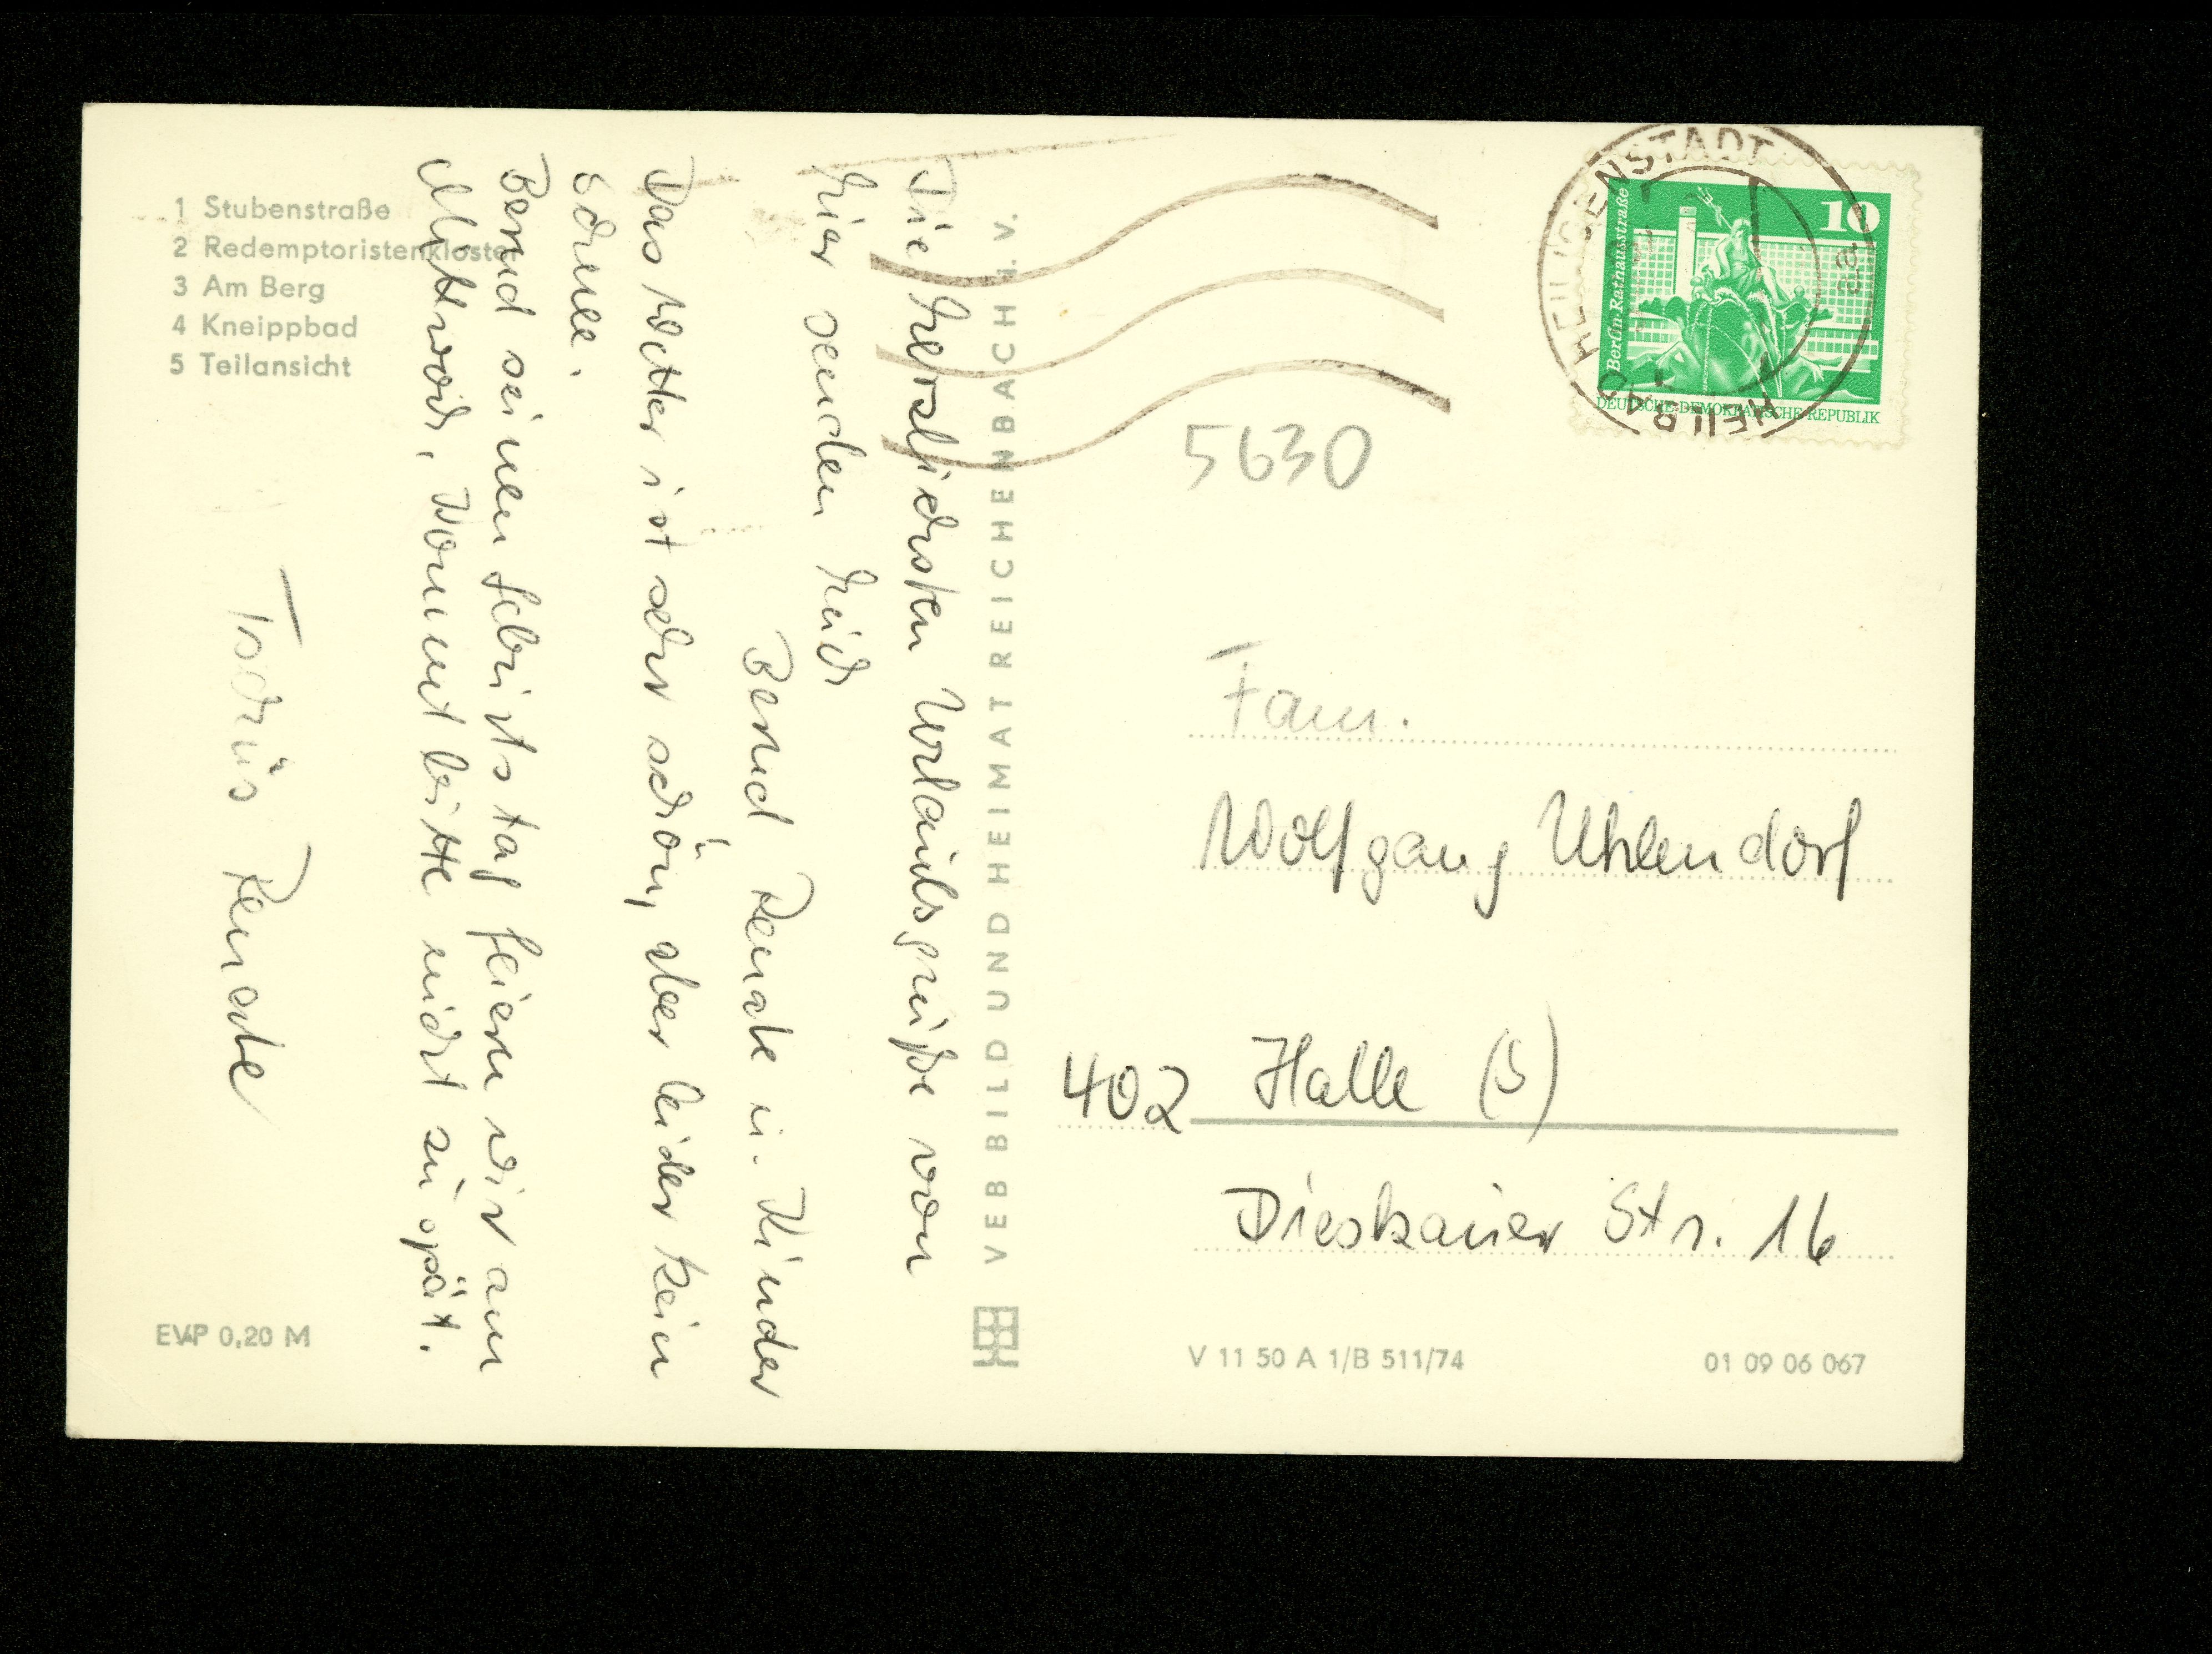 1 Stubenstraße
2 Redemptoristenkloster
3 Am Berg
4 Kneippbad
5 Teilansicht
Die herzlichsten Urlaubsgrüße von
hier senden Euch
Bernd Renate u. Kinder
Das Wetter ist sehr schön, aber leider kein
Schnee.
Bernd seinen Geburtstag feiern wir am
Mittwoch, kommt bitte nicht zu spät.
Tschüs Renate
EVP 0,20 M
VEB BILD UND HEIMAT REICHENBACH i. V.
HEILIGENSTADT
HEILBAD
10
Berlin-Rathausstraße
DEUTSCHE DEMOKRATISCHE REPUBLIK
5630
Fam.
Wolfgang Uhlendorf
402 Halle (S)
Dieskauer Str. 16
V 11 50 A 1/B 511/74
01 09 06 067